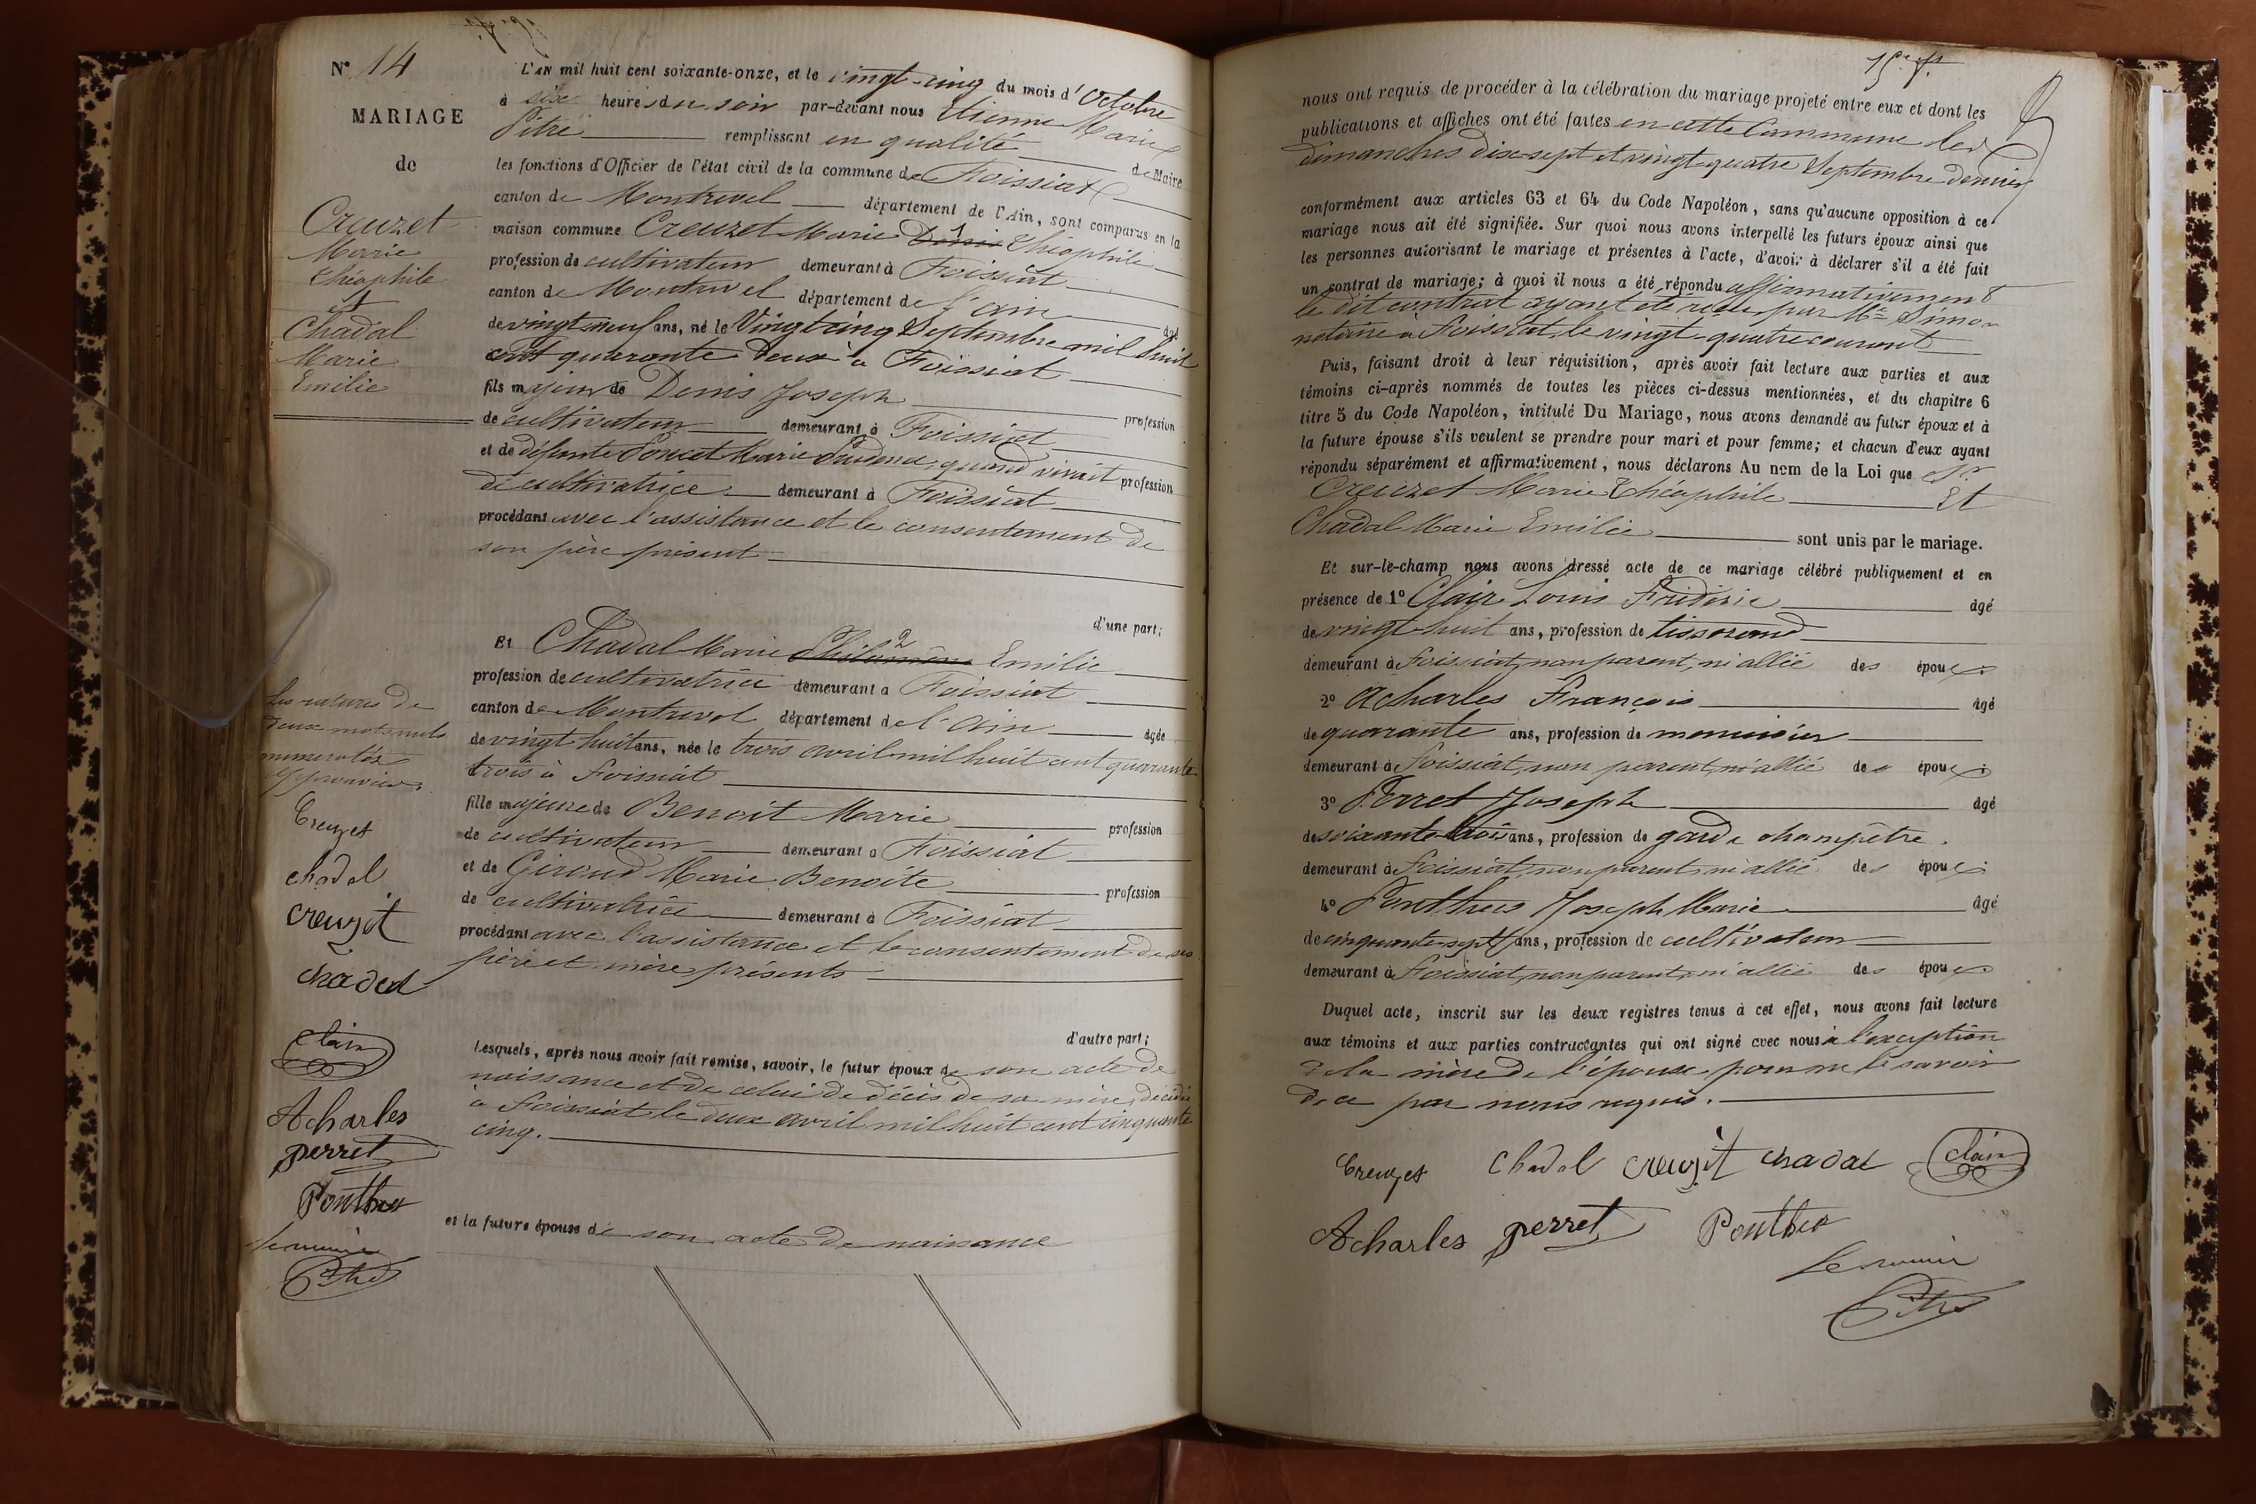 N° 14
MARIAGE
de
Creuzet
Marie
Théophile
et
Chadal
Marie
Emilie
L'AN mil huit cent soixante-onze, et le vingt-cinq du mois d'Octobre
à six heures du soir par-devant nous Etienne Marie
Pitre remplissant en qualité de Maire
les fonctions d'Officier de l'état civil de la commune de Foissiat
canton de Montrevel département de l'Ain, sont comparus en la
maison commune Creuzet Marie Denis 1 Théophile
profession de cultivateur demeurant à Foissiat
canton de Montrevel département de l'ain âgé
de vingt neuf ans, né le Vingt cinq Septembre mil huit
cent quarante deux à Foissiat
fils majeur de Denis Joseph profession
de cultivateur demeurant à Foissiat
et de défunte Marie quand vivait profession
de cultivatrice demeurant à Foissiat
procédant avec l'assistance et le consentement de
son père présent
d'une part;
Et Chadal Marie Philomène 2 Emilie
profession de cultivatrice demeurant à Foissiat
canton de Montrevel département de l'Ain âgée
de vingt huit ans, née le trois avril mil huit cent quarante
trois à Foissiat
fille majeure de Benoit Marie profession
de cultivateur demeurant à Foissiat
et de Giroud Marie Benoite profession
de cultivatrice demeurant à Foissiat
procédant avec l'assistance et le consentement de ses
père et mère présents
d'autre part;
Lesquels, après nous avoir fait remise, savoir, le futur époux de son acte de
naissance et de celui de décès de sa mère, décédée
à Foissiat le deux avril mil huit cent cinquante
cinq.
et la future épouse de son acte de naissance
Les ratures de
deux mots nuls
numerotés
approuvées.
Creuzet
chadal
creuzet
chadal
clair
Acharles
perret
Ponthus
Le maire
Pitre
15e ft.
nous ont requis de procéder à la célébration du mariage projeté entre eux et dont les
publications et affiches ont été faites en cette Commune les
dimanches dix-sept et vingt-quatre Septembre dernier
conformément aux articles 63 et 64 du Code Napoléon, sans qu'aucune opposition à ce
mariage nous ait été signifiée. Sur quoi nous avons interpellé les futurs époux ainsi que
les personnes autorisant le mariage et présentes à l'acte, d'avoir à déclarer s'il a été fait
un contrat de mariage; à quoi il nous a été répondu affirmativement
le dit contrat ayant été reçu par Me Simon
notaire à Foissiat, le vingt-quatre courant
Puis, faisant droit à leur réquisition, après avoir fait lecture aux parties et aux
témoins ci-après nommés de toutes les pièces ci-dessus mentionnées, et du chapitre 6
titre 5 du Code Napoléon, intitulé Du Mariage, nous avons demandé au futur époux et à
la future épouse s'ils veulent se prendre pour mari et pour femme; et chacun d'eux ayant
répondu séparément et affirmativement, nous déclarons Au nom de la Loi que
Creuzet Marie Théophile Et
Chadal Marie Emilie sont unis par le mariage.
Et sur-le-champ nous avons dressé acte de ce mariage célébré publiquement et en
présence de 1° Clair Louis Fréderic âgé
de vingt-huit ans, profession de tisserand
demeurant à Foissiat, non parent, ni allié des époux;
2° Acharles François âgé
de quarante ans, profession de menuisier
demeurant à Foissiat, non parent, ni allié des époux;
3° Perret Joseph âgé
de soixante trois ans, profession de garde champêtre.
demeurant à Foissiat, non parent, ni allié des époux;
4° Ponthus Joseph Marie âgé
de cinquante-sept ans, profession de cultivateur
demeurant à Foissiat, non parent, ni allié des époux.
Duquel acte, inscrit sur les deux registres tenus à cet effet, nous avons fait lecture
aux témoins et aux parties contractantes qui ont signé avec nous à l'exception
de la mère de l'épouse pour ne le savoir
de ce par nous requis.
Creuzet chadal creuzet chadal clair
Acharles perret Ponthus
Le maire
Pitre